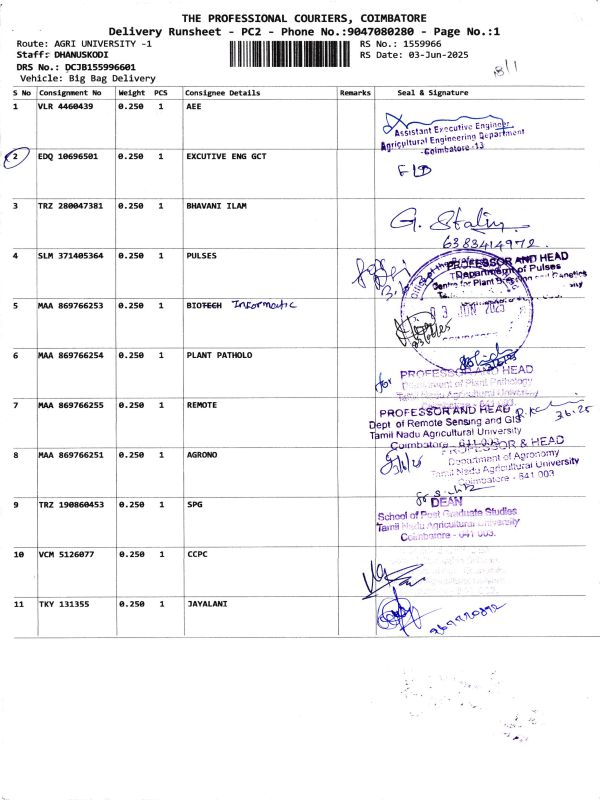 THE PROFESSIONAL COURIERS, COIMBATORE
Delivery Runsheet - PC2 - Phone No.:9047080280 - Page No.:1
Route: AGRI UNIVERSITY -1
RS No.: 1559966
Staff: DHANUSKODI
RS Date: 03-Jun-2025
DRS No.: DCJB155996601
Vehicle: Big Bag Delivery
S No Consignment No Weight PCS Consignee Details Remarks Seal & Signature
1 VLR 4460439 0.250 1 AEE
Assistant Executive Engineer
Agricultural Engineering Department
Coimbatore - 13
2 EDQ 10696501 0.250 1 EXCUTIVE ENG GCT
3 TRZ 280047381 0.250 1 BHAVANI ILAM
G. Stalin
6383414972
4 SLM 371405364 0.250 1 PULSES
PROFESSOR AND HEAD
Department of Pulses
Centre for Plant Breeding and Genetics
5 MAA 869766253 0.250 1 BIOTECH Informatic
03 JUN 2025
COIMBATORE
6 MAA 869766254 0.250 1 PLANT PATHOLO
for
PROFESSOR AND HEAD
Department of Plant Pathology
Tamil Nadu Agricultural University
7 MAA 869766255 0.250 1 REMOTE
PROFESSOR AND HEAD
3.6.25
Dept of Remote Sensing and GIS
Tamil Nadu Agricultural University
Coimbatore - 641 003
8 MAA 869766251 0.250 1 AGRONO
PROFESSOR & HEAD
Department of Agronomy
Tamil Nadu Agricultural University
Coimbatore - 641 003
9 TRZ 190860453 0.250 1 SPG
DEAN
School of Post Graduate Studies
Tamil Nadu Agricultural University
Coimbatore - 641 003.
10 VCM 5126077 0.250 1 CCPC
11 TKY 131355 0.250 1 JAYALANI